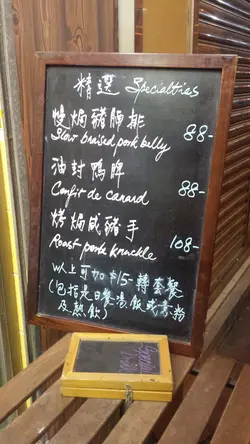 精選 Specialties
慢焗豬腩排
Slow braised pork belly 88-
油封鴨髀
Confit de canard 88-
烤焗咸豬手
Roast pork knuckle 108-
以上可加$15-轉套餐
(包括是日餐湯,飯或意粉
及熱飲)